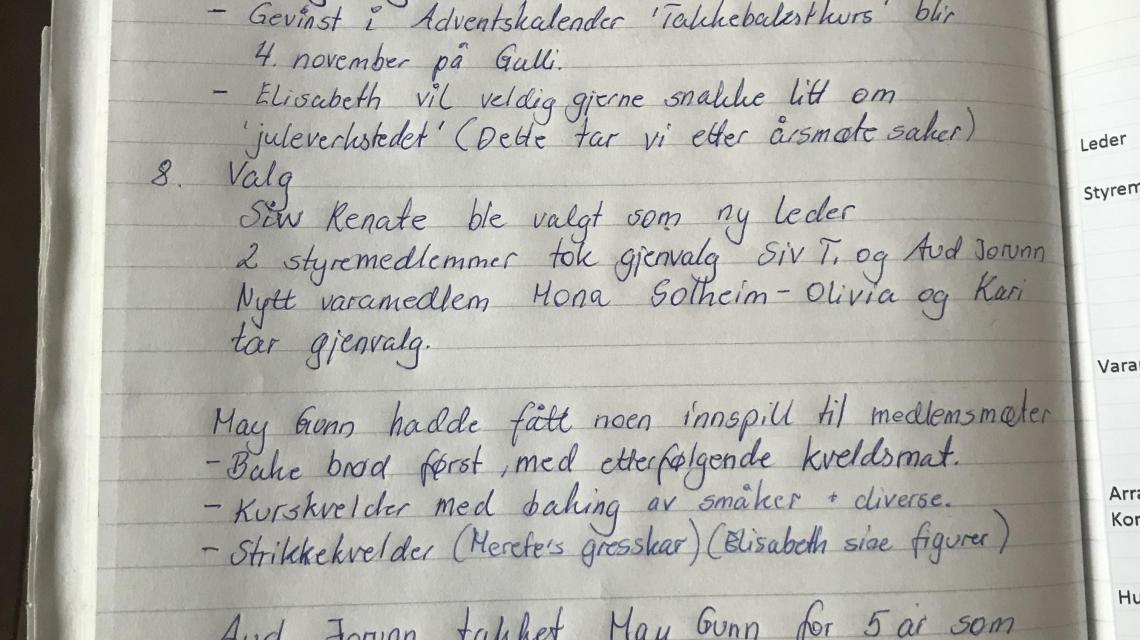 - Gevinst i Adventskalender 'Takkebakstkurs' blir
4. november på Gulli.
- Elisabeth vil veldig gjerne snakke litt om
'juleverkstedet' (Dette tar vi etter årsmøte saker)
8. Valg
Siw Renate ble valgt som ny leder
2 styremedlemmer tok gjenvalg Siv T, og Aud Jorunn
Nytt varamedlem Mona Solheim - Olivia og Kari
tar gjenvalg.
May Gunn hadde fått noen innspill til medlemsmøter
- Bake brød først, med etterfølgende kveldsmat.
- Kurskvelder med baking av småker + diverse.
- Strikkekvelder (Merete's gresskar) (Elisabeth sine figurer)
Aud Jorunn takket May Gunn for 5 år som
Leder
Styrem
Vara
Arra
Kor
Hu